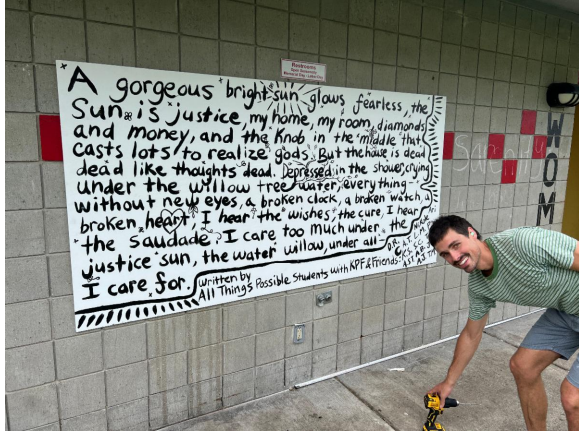 Restrooms
A gorgeous bright sun glows fearless, the
Sun is justice, my home, my room, diamonds
and money, and the knob in the middle that
casts lots to realize gods. But the house is dead
dead like thoughts dead. Depressed in the shower, crying
under the willow tree, water, everything-
without new eyes, a broken clock, a broken watch, a
broken heart, I hear the wishes, the cure, I hear
the saudade, I care too much under the
justice sun, the water willow, under all
I care for.
written by
All Things Possible Students with KPF & Friends:
WOM